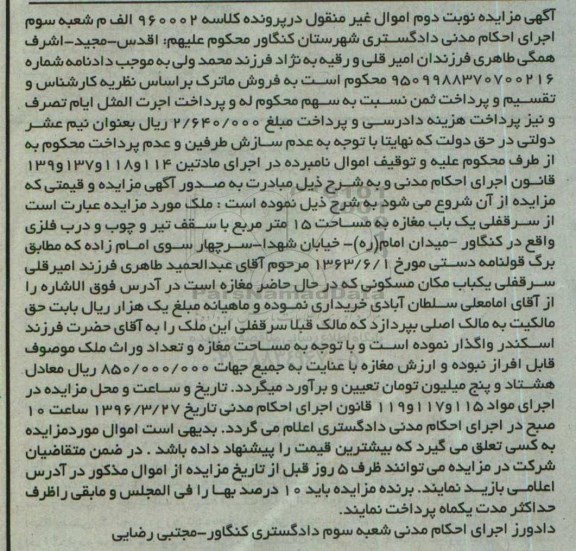 آگهی مزایده نوبت دوم اموال غیر منقول درپرونده کلاسه ۹۶۰۰۰۲ الف م شعبه سوم
اجرای احکام مدنی دادگستری شهرستان کنگاور محکوم علیهم: اقدس-مجید-اشرف
همگی طاهری فرزندان امیر قلی و رقیه به نژاد فرزند محمد ولی به موجب دادنامه شماره
۹۵۰۹۹۸۸۳۷۰۷۰۰۲۱۶ محکوم است به فروش ماترک براساس نظریه کارشناس و
تقسیم و پرداخت ثمن نسبت به سهم محکوم له و پرداخت اجرت المثل ایام تصرف
و نیز پرداخت هزینه دادرسی و پرداخت مبلغ ۲/۶۴۰/۰۰۰ ریال بعنوان نیم عشر
دولتی در حق دولت که نهایتا با توجه به عدم سازش طرفین و عدم پرداخت محکوم به
از طرف محکوم علیه و توقیف اموال نامبرده در اجرای مادتین ۱۱۴و۱۱۸و۱۳۷و۱۳۹
قانون اجرای احکام مدنی و به شرح ذیل مبادرت به صدور آگهی مزایده و قیمتی که
مزایده از آن شروع می شود به شرح ذیل نموده است : ملک مورد مزایده عبارت است
از سرقفلی یک باب مغازه به مساحت ۱۵ متر مربع با سقف تیر و چوب و درب فلزی
واقع در کنگاور -میدان امام(ره)- خیابان شهدا-سرچهار سوی امام زاده که مطابق
برگ قولنامه دستی مورخ ۱۳۶۳/۶/۱ مرحوم آقای عبدالحمید طاهری فرزند امیرقلی
سرقفلی یکباب مکان مسکونی که در حال حاضر مغازه است در آدرس فوق الاشاره را
از آقای امامعلی سلطان آبادی خریداری نموده و ماهیانه مبلغ یک هزار ریال بابت حق
مالکیت به مالک اصلی بپردازد که مالک قبلا سرقفلی این ملک را به آقای حضرت فرزند
اسکندر واگذار نموده است و با توجه به مساحت مغازه و تعداد وراث ملک موصوف
قابل افراز نبوده و ارزش مغازه با عنایت به جمیع جهات ۸۵۰/۰۰۰/۰۰۰ ریال معادل
هشتاد و پنج میلیون تومان تعیین و برآورد میگردد. تاریخ و ساعت و محل مزایده در
اجرای مواد ۱۱۵و۱۱۷و۱۱۹ قانون اجرای احکام مدنی تاریخ ۱۳۹۶/۳/۲۷ ساعت ۱۰
صبح در اجرای احکام مدنی دادگستری اعلام می گردد. بدیهی است اموال موردمزایده
به کسی تعلق می گیرد که بیشترین قیمت را پیشنهاد داده باشد . در ضمن متقاضیان
شرکت در مزایده می توانند ظرف ۵ روز قبل از تاریخ مزایده از اموال مذکور در آدرس
اعلامی بازید نمایند. برنده مزایده باید ۱۰ درصد بها را فی المجلس و مابقی راظرف
حداکثر مدت یکماه پرداخت نمایند.
دادورز اجرای احکام مدنی شعبه سوم دادگستری کنگاور-مجتبی رضایی